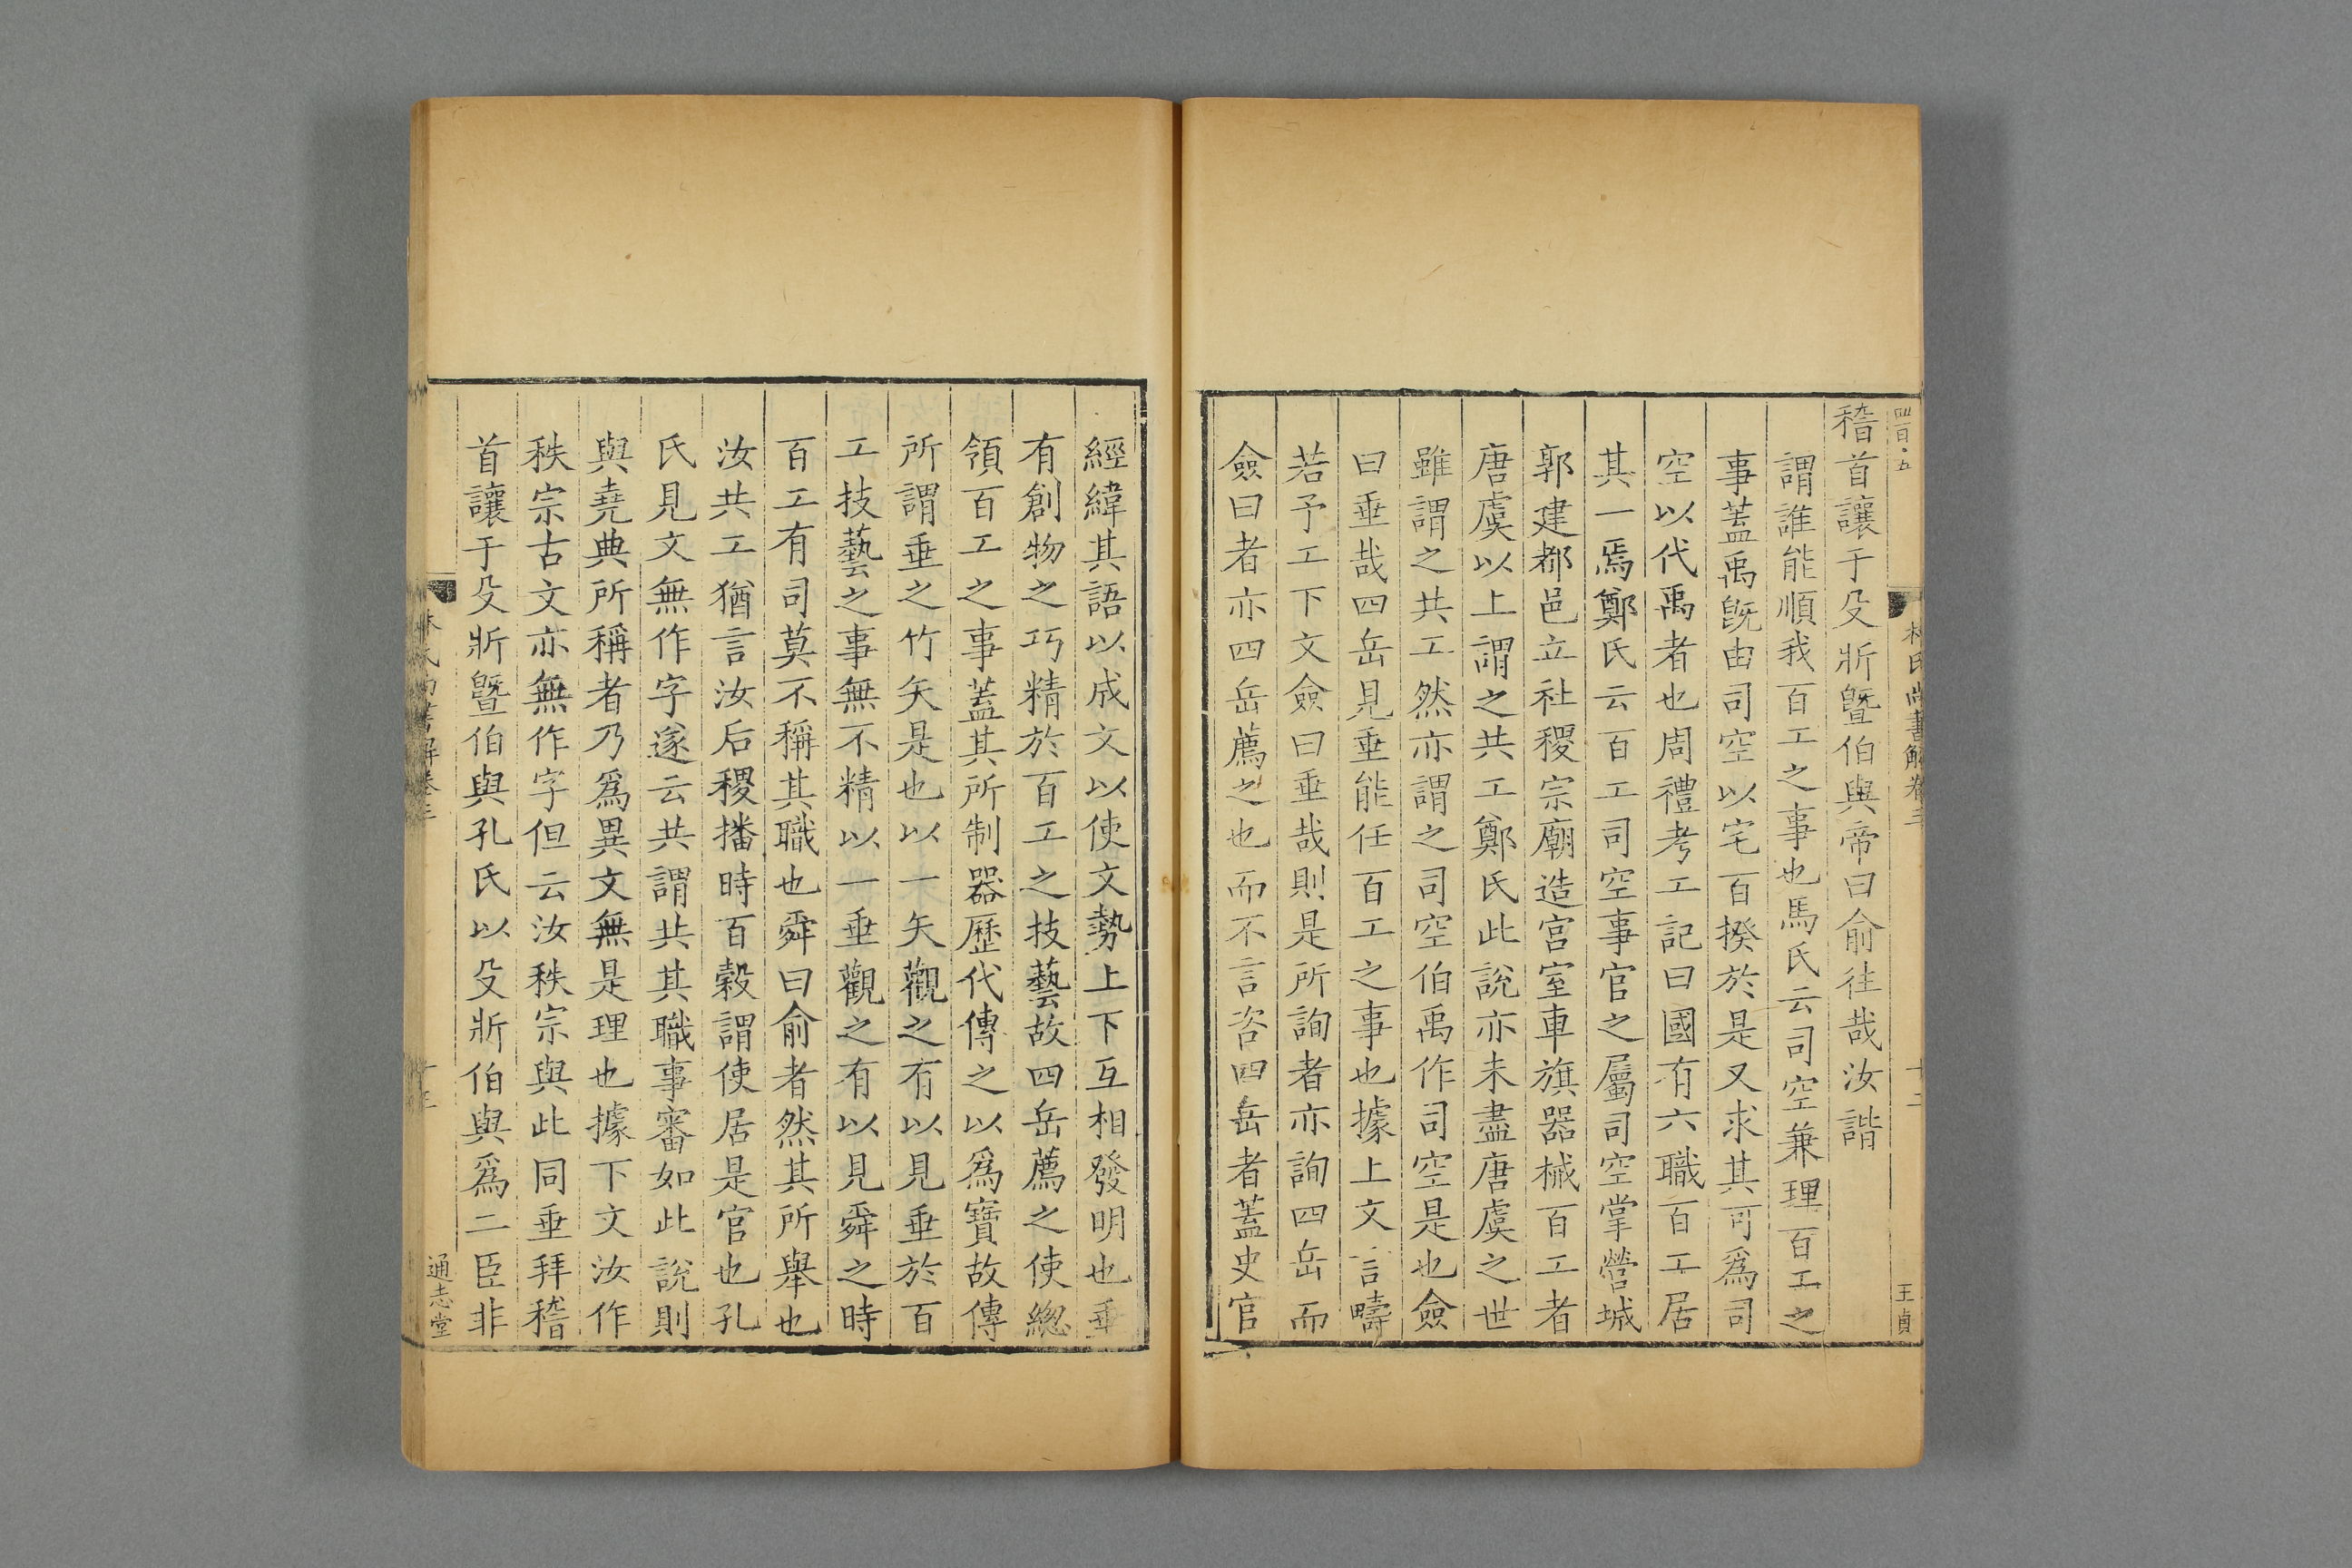 四百·五
林氏尚書解卷三
十二
王貞
稽首讓于殳斨曁伯與帝曰俞往哉汝諧
謂誰能順我百工之事也馬氏云司空兼理百工之
事蓋禹既由司空以宅百揆於是又求其可爲司
空以代禹者也周禮考工記曰國有六職百工居
其一焉鄭氏云百工司空事官之屬司空掌營城
郭建都邑立社稷宗廟造宮室車旗器械百工者
唐虞以上謂之共工鄭氏此說亦未盡唐虞之世
雖謂之共工然亦謂之司空伯禹作司空是也僉
曰垂哉四岳見垂能任百工之事也據上文言疇
若予工下文僉曰垂哉則是所詢者亦詢四岳而
僉曰者亦四岳薦之也而不言咨四岳者蓋史官
經緯其語以成文以使文勢上下互相發明也垂
有創物之巧精於百工之技藝故四岳薦之使緫
領百工之事蓋其所制器歷代傳之以爲寶故傳
所謂垂之竹矢是也以一矢觀之有以見垂於百
工技藝之事無不精以一垂觀之有以見舜之時
百工有司莫不稱其職也舜曰俞者然其所舉也
汝共工猶言汝后稷播時百穀謂使居是官也孔
氏見文無作字遂云共謂共其職事審如此說則
與堯典所稱者乃爲異文無是理也據下文汝作
秩宗古文亦無作字但云汝秩宗與此同垂拜稽
首讓于殳斨曁伯與孔氏以殳斨伯與爲二臣非
通志堂